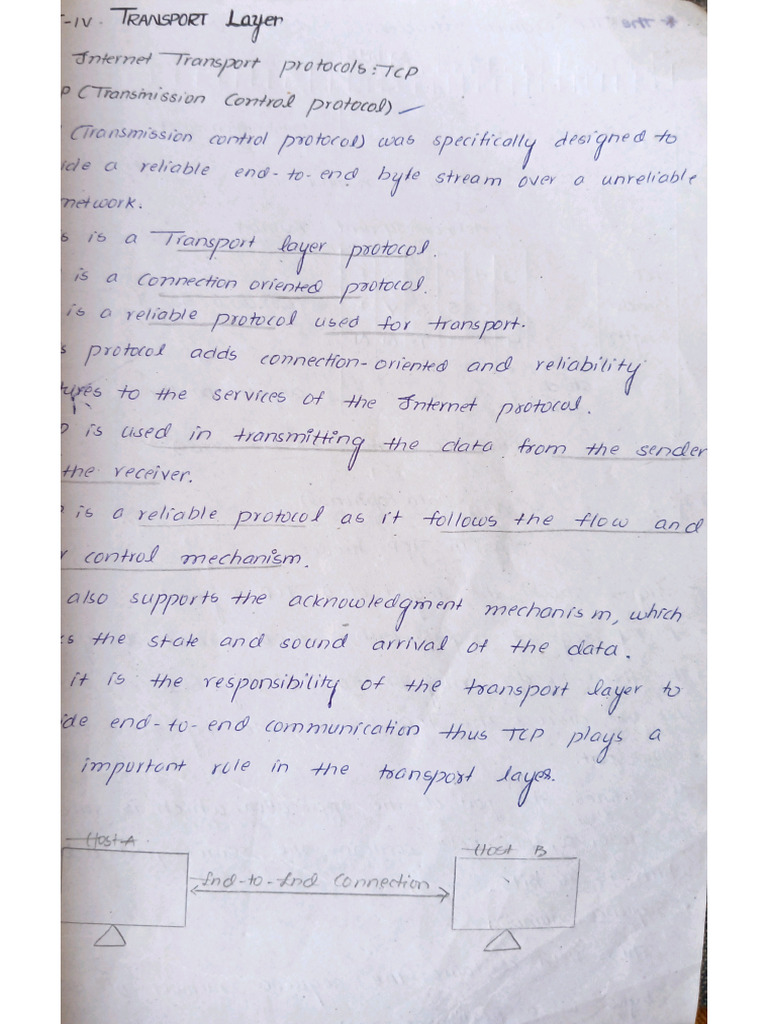 T-IV. TRANSPORT Layer
Internet Transport protocols: TCP
P (Transmission Control protocol)
(Transmission control protocol) was specifically designed to
ide a reliable end-to-end byte stream over a unreliable
network.
s is a Transport layer protocol.
is a connection oriented protocol.
is a reliable protocol used for transport.
s protocol adds connection-oriented and reliability
tures to the services of the Internet protocol.
P is used in transmitting the data from the sender
the receiver.
P is a reliable protocol as it follows the flow and
r control mechanism.
also supports the acknowledgment mechanism, which
ks the state and sound arrival of the data.
it is the responsibility of the transport layer to
ide end-to-end communication thus TCP plays a
important role in the transport layer.
Host A
Host B
End-to-End Connection